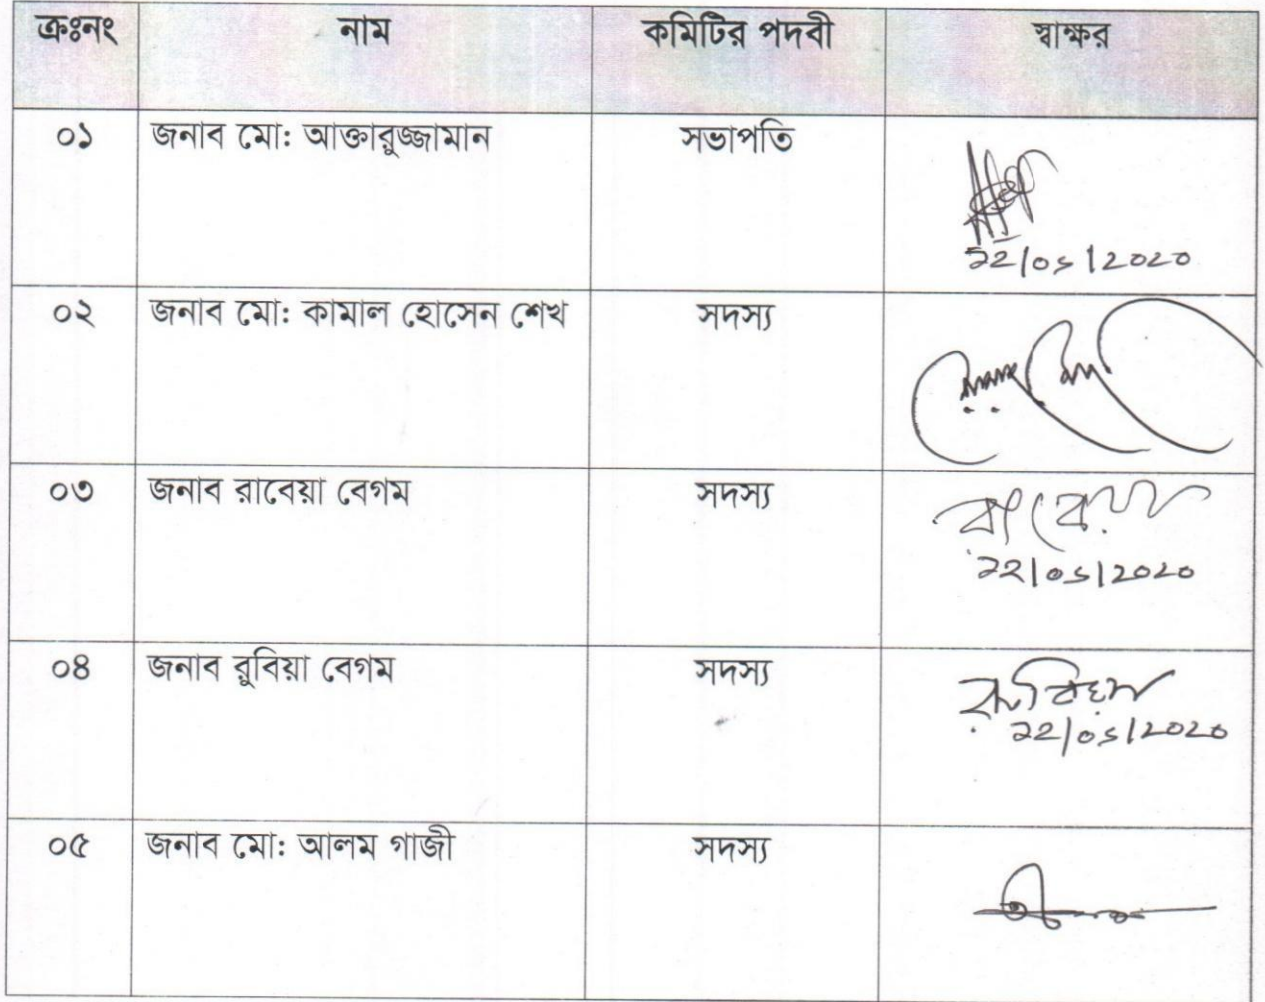 ক্রঃনং নাম কমিটির পদবী স্বাক্ষর
০১ জনাব মো: আক্তারুজ্জামান সভাপতি
২২/০১/২০২০
০২ জনাব মো: কামাল হোসেন শেখ সদস্য
০৩ জনাব রাবেয়া বেগম সদস্য রাবেয়া
২২/০১/২০২০
০৪ জনাব রুবিয়া বেগম সদস্য রুবিয়া
২২/০১/২০২০
০৫ জনাব মো: আলম গাজী সদস্য